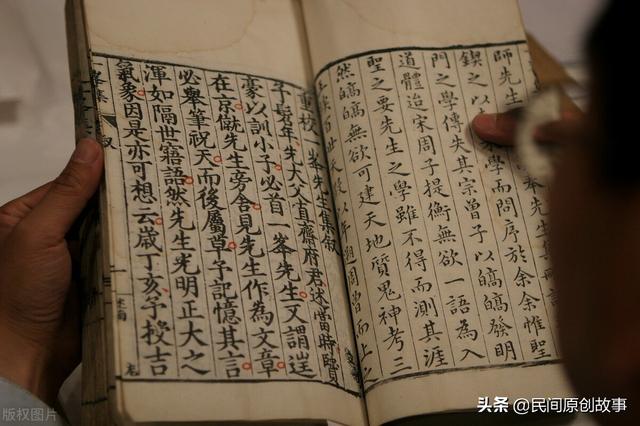 師先生
鍥之以 學而問序於余余惟聖
門之學傳失其宗曾子以皜皜發明
道體迨宋周子提衡無欲一語為入
聖之要先生之學雖不得而測其涯
然皜皜無欲可建天地質鬼神考三
重校 峯先生集叙
予髫年先大父直齋府君述當時賢
豪以訓小子必首一峯先生又謂逞
在京僦先生旁舍見先生作為文章
必舉筆祝天而後屬草予記憶其言
渾如隔世寤語然先生光明正大之
氣象因是亦可想云歲丁亥予授吉
峯集 叙
版权图片
头条 @民间原创故事